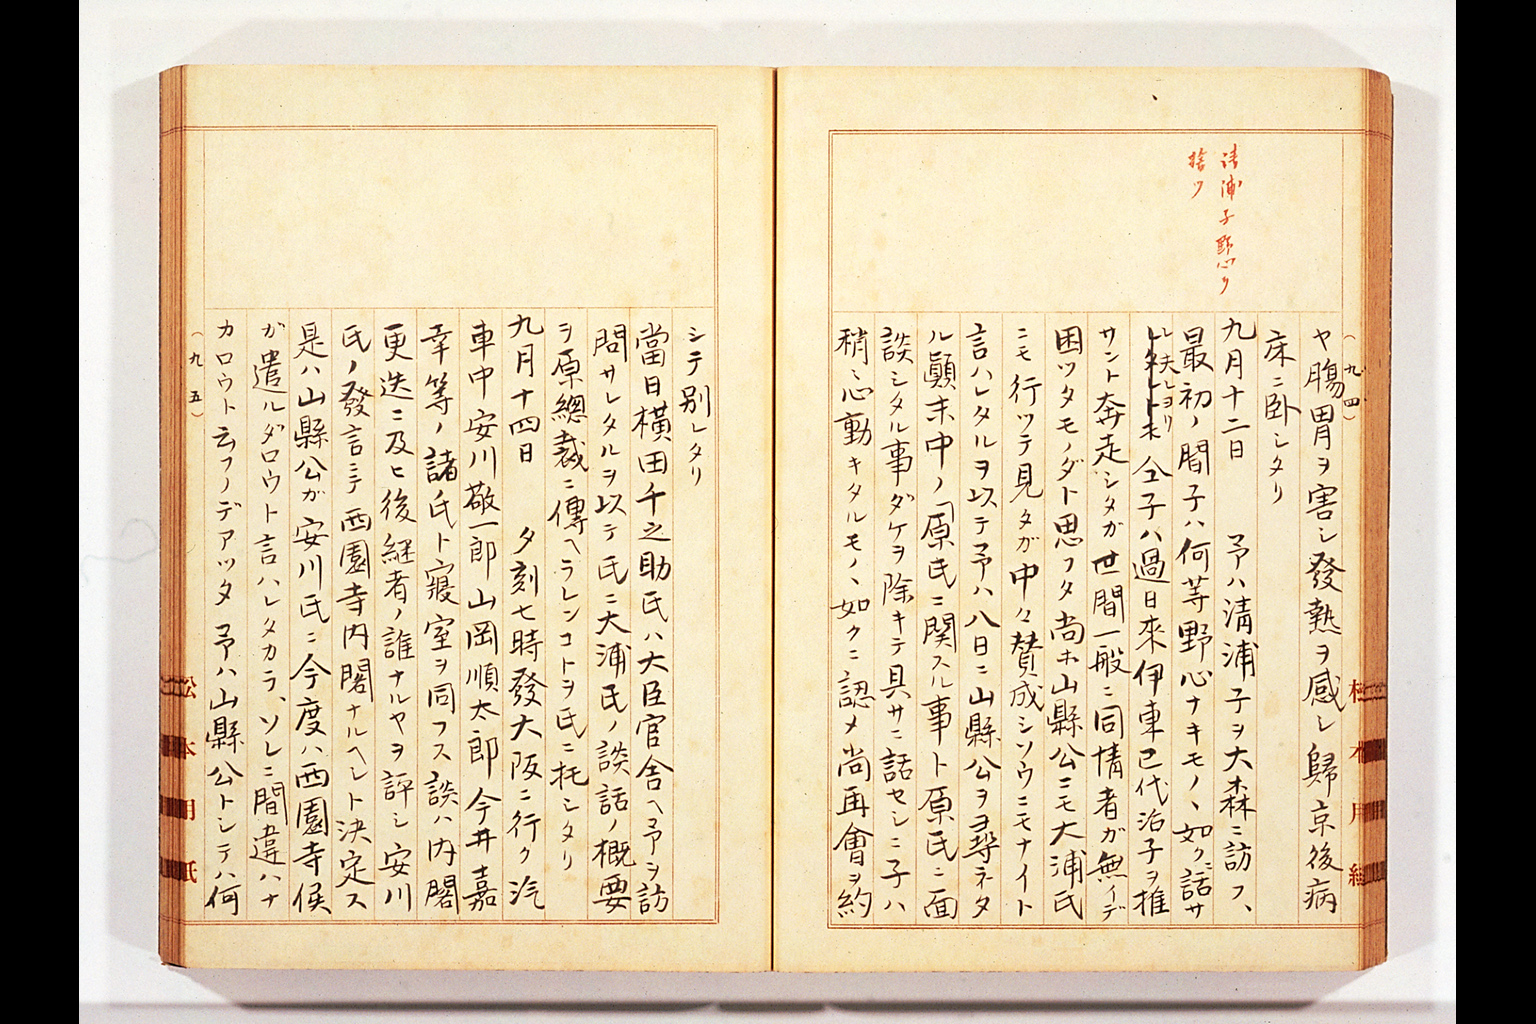 清浦子野心ヲ
捨ツ
(九四)
ヤ腸胃ヲ害シ發熱ヲ感シ歸京後病
床ニ臥シタリ
九月十二日　予ハ清浦子ヲ大森ニ訪フ、
最初ノ間子ハ何等野心ナキモノヽ如クニ話サ
レ夫レヨリ仝子ハ過日來伊東巳代治子ヲ推
サント奔走シタガ世間一般ニ同情者ガ無イデ
困ツタモノダト思フタ尚ホ山縣公ニモ大浦氏
ニモ行ツテ見タガ中々賛成シソウニモナイト
言ハレタルヲ以テ予ハ八日ニ山縣公ヲヲ尋ネタ
ル顚末中ノ「原氏ニ関スル事ト原氏ニ面
談シタル事ダケヲ除キテ具サニ話セシニ子ハ
稍ミ心動キタルモノヽ如クニ認メ尚再會ヲ約
シテ別レタリ
當日横田千之助氏ハ大臣官舎ヘ予ヲ訪
問サレタルヲ以テ氏ニ大浦氏ノ談話ノ概要
ヲ原總裁ニ傳ヘラレンコトヲ氏ニ托シタリ
九月十四日　夕刻七時發大阪ニ行ク汽
車中安川敬一郎山岡順太郎今井嘉
幸等ノ諸氏ト寢室ヲ同フス談ハ内閣
更迭ニ及ヒ後継者ノ誰ナルヤヲ評シ安川
氏ノ發言ニテ西園寺内閣ナルヘシト決定ス
是ハ山縣公ガ安川氏ニ今度ハ西園寺侯
ガ遣ルダロウト言ハレタカラ、ソレニ間違ハナ
カロウト云フノデアツタ予ハ山縣公トシテハ何
(九五)
松本用紙